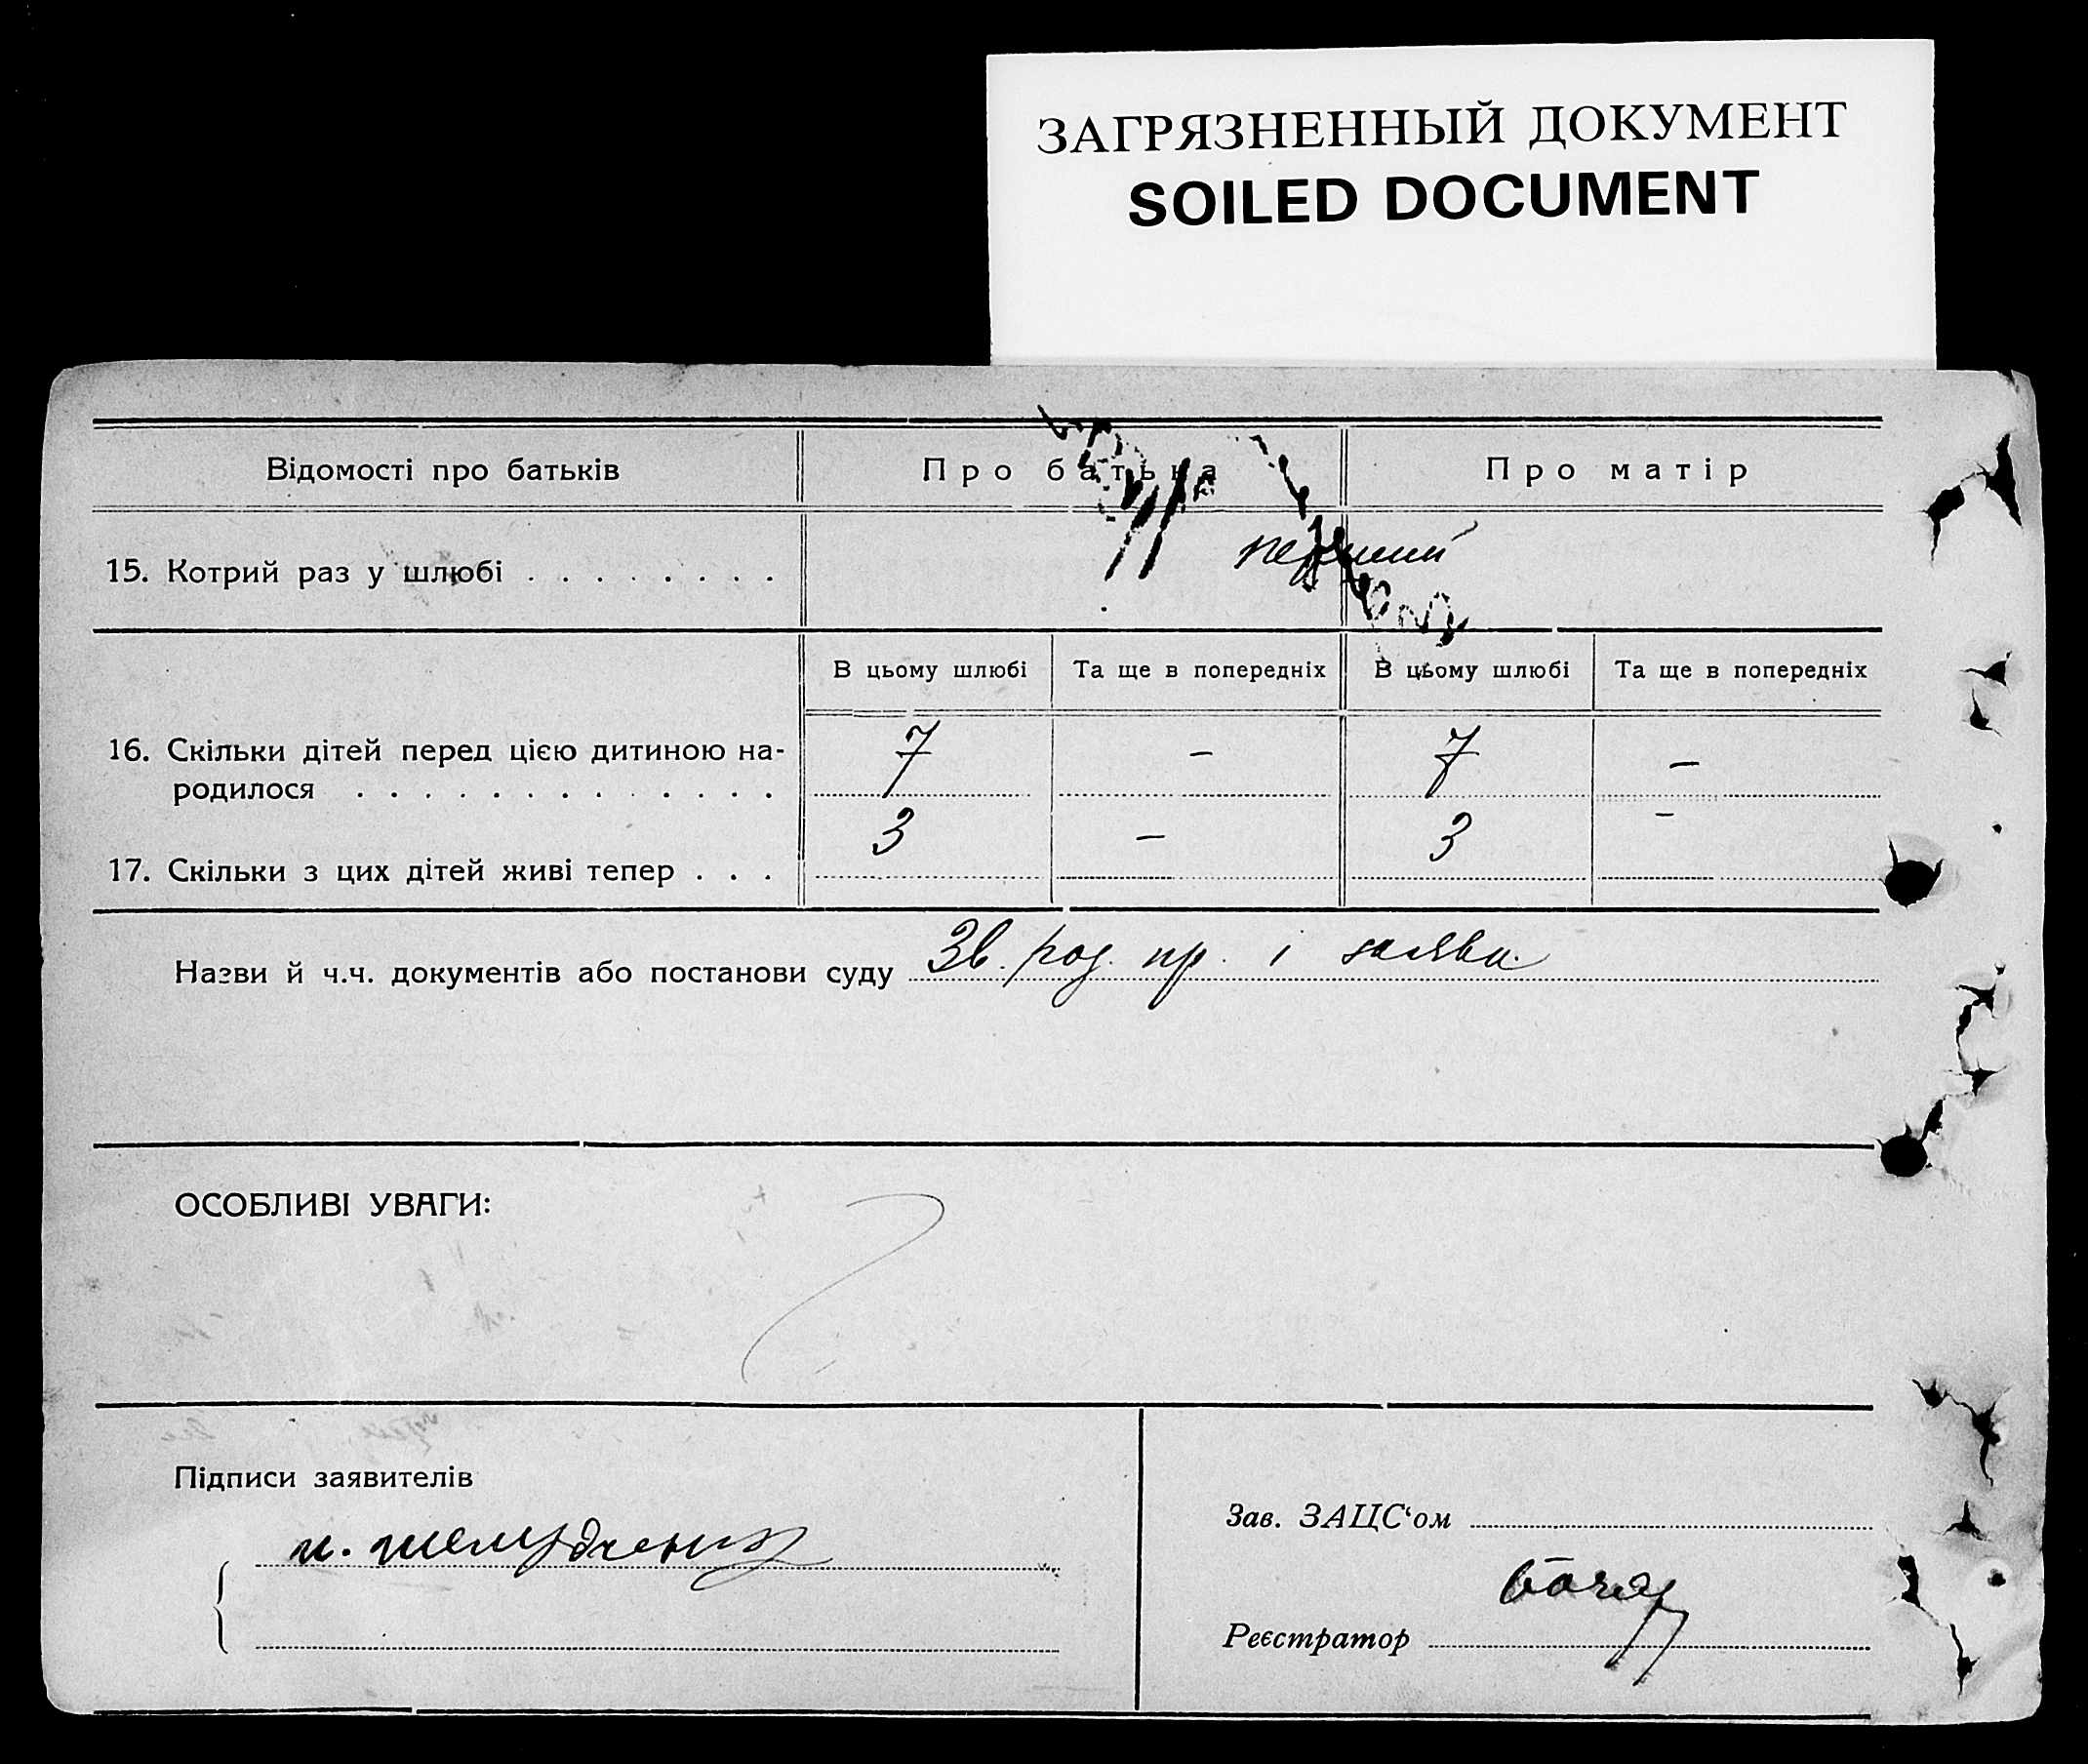 ЗАГРЯЗНЕННЫЙ ДОКУМЕНТ
SOILED DOCUMENT
Відомості про батьків Про батька Про матір
15. Котрий раз у шлюбі . . . . . . . . перший
В цьому шлюбі Та ще в попередніх В цьому шлюбі Та ще в попередніх
16. Скільки дітей перед цією дитиною на-
родилося . . . . . . . . . . . . . 7 – 7 –
17. Скільки з цих дітей живі тепер . . . 3 – 3 –
Назви й ч.ч. документів або постанови суду Зв. род. пр. і заяви.
ОСОБЛИВІ УВАГИ:
Підписи заявителів
Зав. ЗАЦС‘ом
Реєстратор